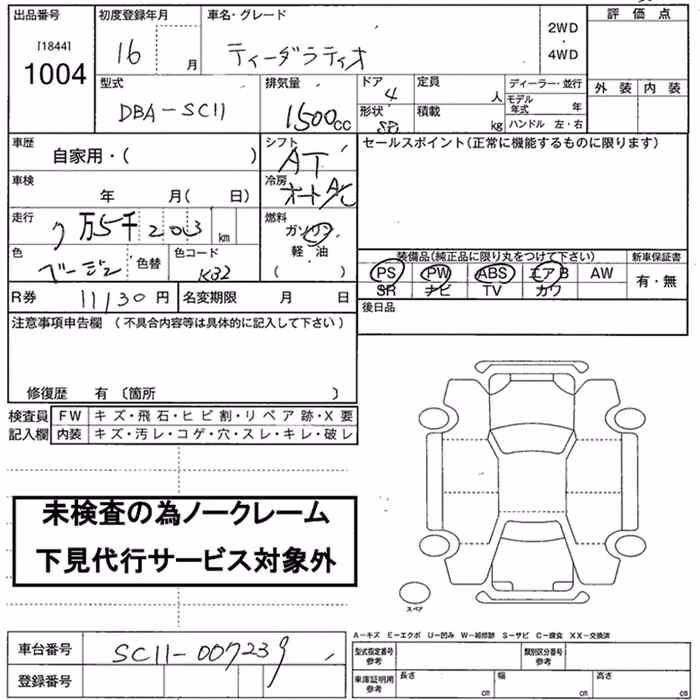 出品番号 初度登録年月 車名・グレード 評価点
[1844]
1004
16 月 ティーダラティオ 2WD・4WD
外装 内装
型式 排気量 ドア 定員 ディーラー・並行
DBA-SC11 1500cc 4 人 モデル年式 年
形状 積載 kg ハンドル 左・右
車歴 シフト セールスポイント(正常に機能するものに限ります)
自家用・( ) AT
車検 冷房
年 月( 日) オートA/C
走行 燃料
7万5千203km ガソリン
軽・油
( )
色 色替 色コード
ベージュ K32
装備品(純正品に限り丸をつけて下さい) 新車保証書
PS PW ABS エアB AW 有・無
SR ナビ TV カワ
R券 11130円 名変期限 月 日 後日品
注意事項申告欄 (不具合内容等は具体的に記入して下さい)
修復歴 有 〔箇所 〕
検査員 FW キズ・飛石・ヒビ割・リペア跡・X要
記入欄 内装 キズ・汚レ・コゲ・穴・スレ・キレ・破レ
未検査の為ノークレーム
下見代行サービス対象外
スペア
A-キズ E-エクボ U-凹み W-補修跡 S-サビ C-腐食 XX-交換済
車台番号 SC11-007239
型式指定番号 参考 類別区分番号 参考
登録番号
車庫証明用 参考 長さ cm 幅 cm 高さ cm